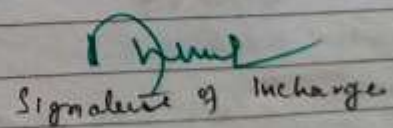 Signature of Incharge